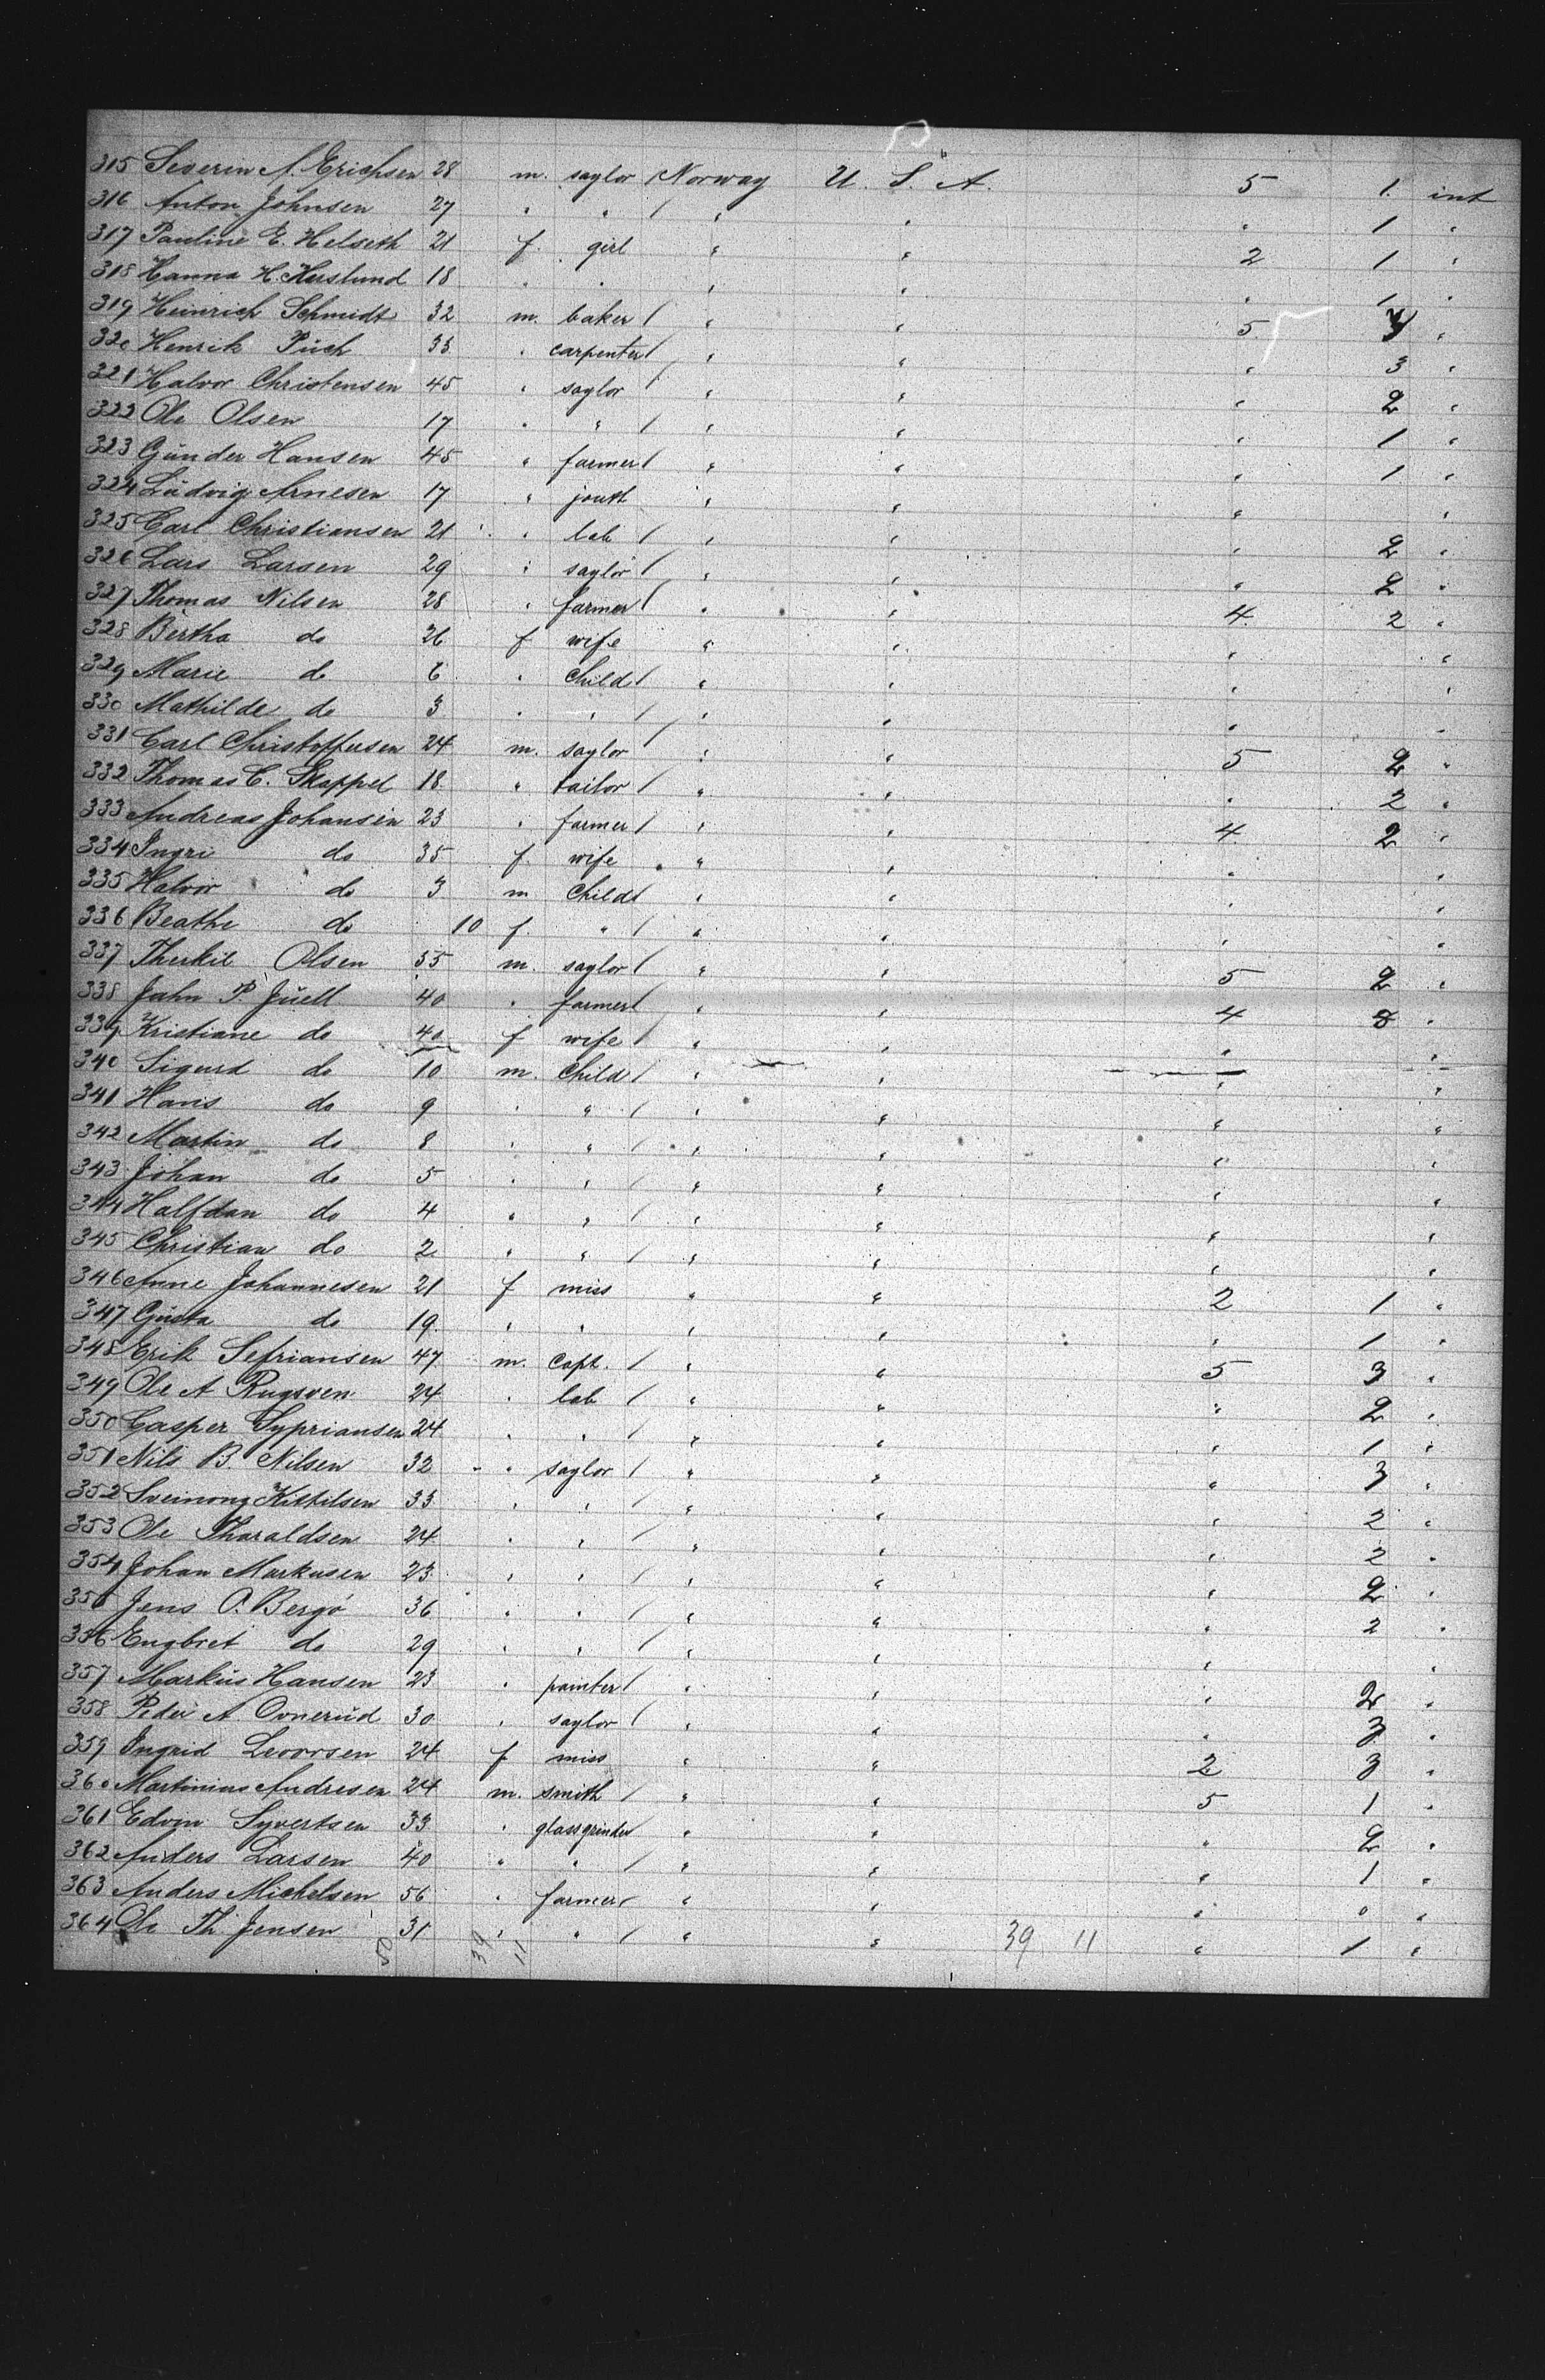 315 Severin A. Erichsen 28 m. saylor / Norway U. S. A. 5 1. int
316 Anton Johnsen 27 " " / " " " 1 "
317 Pauline E. Helseth 21 f. girl " " 2 1 "
318 Hanna H. Herslund 18 " " " " " 1 "
319 Heinrich Schmidt 32 m. baker / " " 5 3 "
320 Henrik Püch 33 " carpenter / " " " 3 "
321 Halvor Christensen 45 " saylor / " " " 2 "
322 Ole Olsen 17 " " / " " " 1 "
323 Günder Hansen 45 " farmer / " " " 1 "
324 Lüdvig Arnesen 17 " jouth " " " "
325 Carl Christiansen 21 " lab / " " " 2 "
326 Lars Larsen 29 " saylor / " " " 2 "
327 Thomas Nilsen 28 " farmer / " " 4 2 "
328 Bertha do 26 f wife " " " "
329 Marie do 6 " Child / " " " "
330 Mathilde do 3 " " / " " " "
331 Carl Christoffersen 24 m. saylor / " " 5 2 "
332 Thomas C. Skappel 18 " tailor / " " " 2 "
333 Andreas Johansen 23 " farmer / " " 4 2 "
334 Ingri do 35 f wife " " " "
335 Halvor do 3 m Child / " " " "
336 Beathe do 10 f. " / " " " "
337 Therkil Olsen 55 m. saylor / " " 5 2 "
338 John P. Jüell 40 " farmer / " " 4 8 "
339 Kristiane do 40 f wife / " " " "
340 Sigurd do 10 m. Child / " " " "
341 Hans do 9 " " / " " " "
342 Martin do 8 " " / " " " "
343 Johan do 5 " " / " " " "
344 Halfdan do 4 " " / " " " "
345 Christian do 2 " " / " " " "
346 Anne Johannesen 21 f miss " " 2 1 "
347 Güsta do 19. " " " " " 1 "
348 Erik Sefriansen 47 m. Capt. / " " 5 3 "
349 Ole A Rugsven 24 " lab / " " " 2 "
350 Casper Sypriansen 24 " " / " " " 1 "
351 Nils B. Nilsen 32 " saylor / " " " 3 "
352 Sveinong Kittilsen 33 " " / " " " 2 "
353 Ole Tharaldsen 24 " " / " " " 2 "
354 Johan Markusen 23 " " / " " " 2 "
355 Jens O. Bergö 36 " " / " " " 2 "
356 Engbret do 29 " " / " " " "
357 Marküs Hansen 23 " painter / " " " 2 "
358 Peder A Ovnerüd 30 " saylor / " " " 3 "
359 Ingrid Levorsen 24 f miss " " 2 3 "
360 Martinius Andresen 24 m. smith / " " 5 1 "
361 Edvin Syvertsen 33 " glassgrinder " " " 2 "
362 Anders Larsen 40 " " / " " " 1 "
363 Anders Michelsen 56 " farmer / " " " " "
364 Ole Th. Jensen 31 " " / " " 39 11 " 1 "
50 39 11